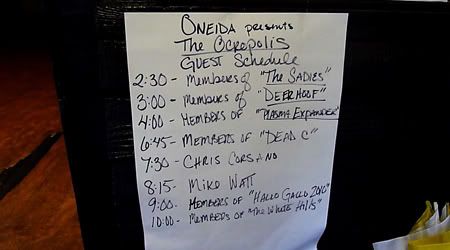 ONEIDA presents
The Ocropolis
GUEST Schedule
2:30 - Members of "The SADIES"
3:00 - Members of "DEERHOOF"
4:00 - MEMBERS OF "PLASMA EXPANDER"
6:45 - MEMBERS OF "DEAD C"
7:30 - CHRIS CORSANO
8:15 - MIKE WATT
9:00 - MEMBERS OF "HALLO GALLO 2010"
10:00 - MEMBERS OF "THE WHITE HILLS"